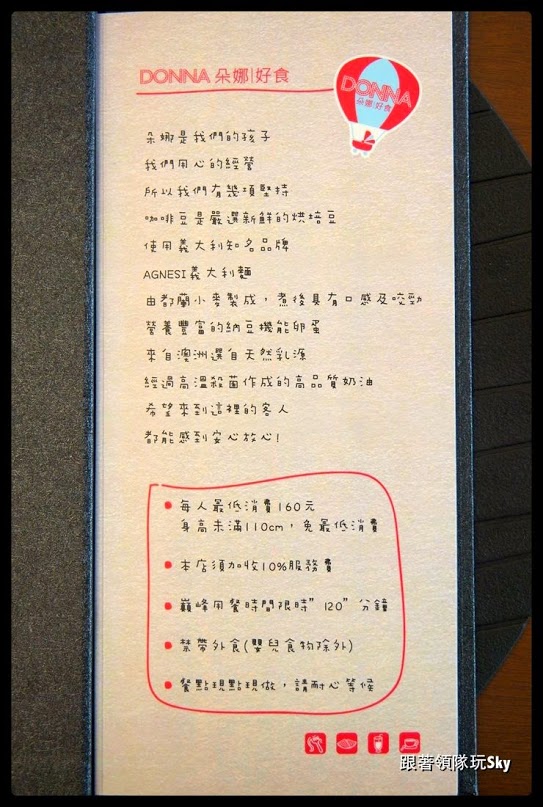 DONNA 朵娜|好食
DONNA
朵娜|好食
朵娜是我們的孩子
我們用心的經營
所以我們有幾項堅持
咖啡豆是嚴選新鮮的烘培豆
使用義大利知名品牌
AGNESI義大利麵
由都蘭小麥製成，煮後具有口感及咬勁
營養豐富的納豆機能卵蛋
來自澳洲選自天然乳源
經過高溫殺菌作成的高品質奶油
希望來到這裡的客人
都能感到安心放心!
每人最低消費160元
身高未滿110cm，免最低消費
本店須加收10%服務費
巔峰用餐時間限時”120”分鐘
禁帶外食(嬰兒食物除外)
餐點現點現做，請耐心等候
跟著領隊玩Sky